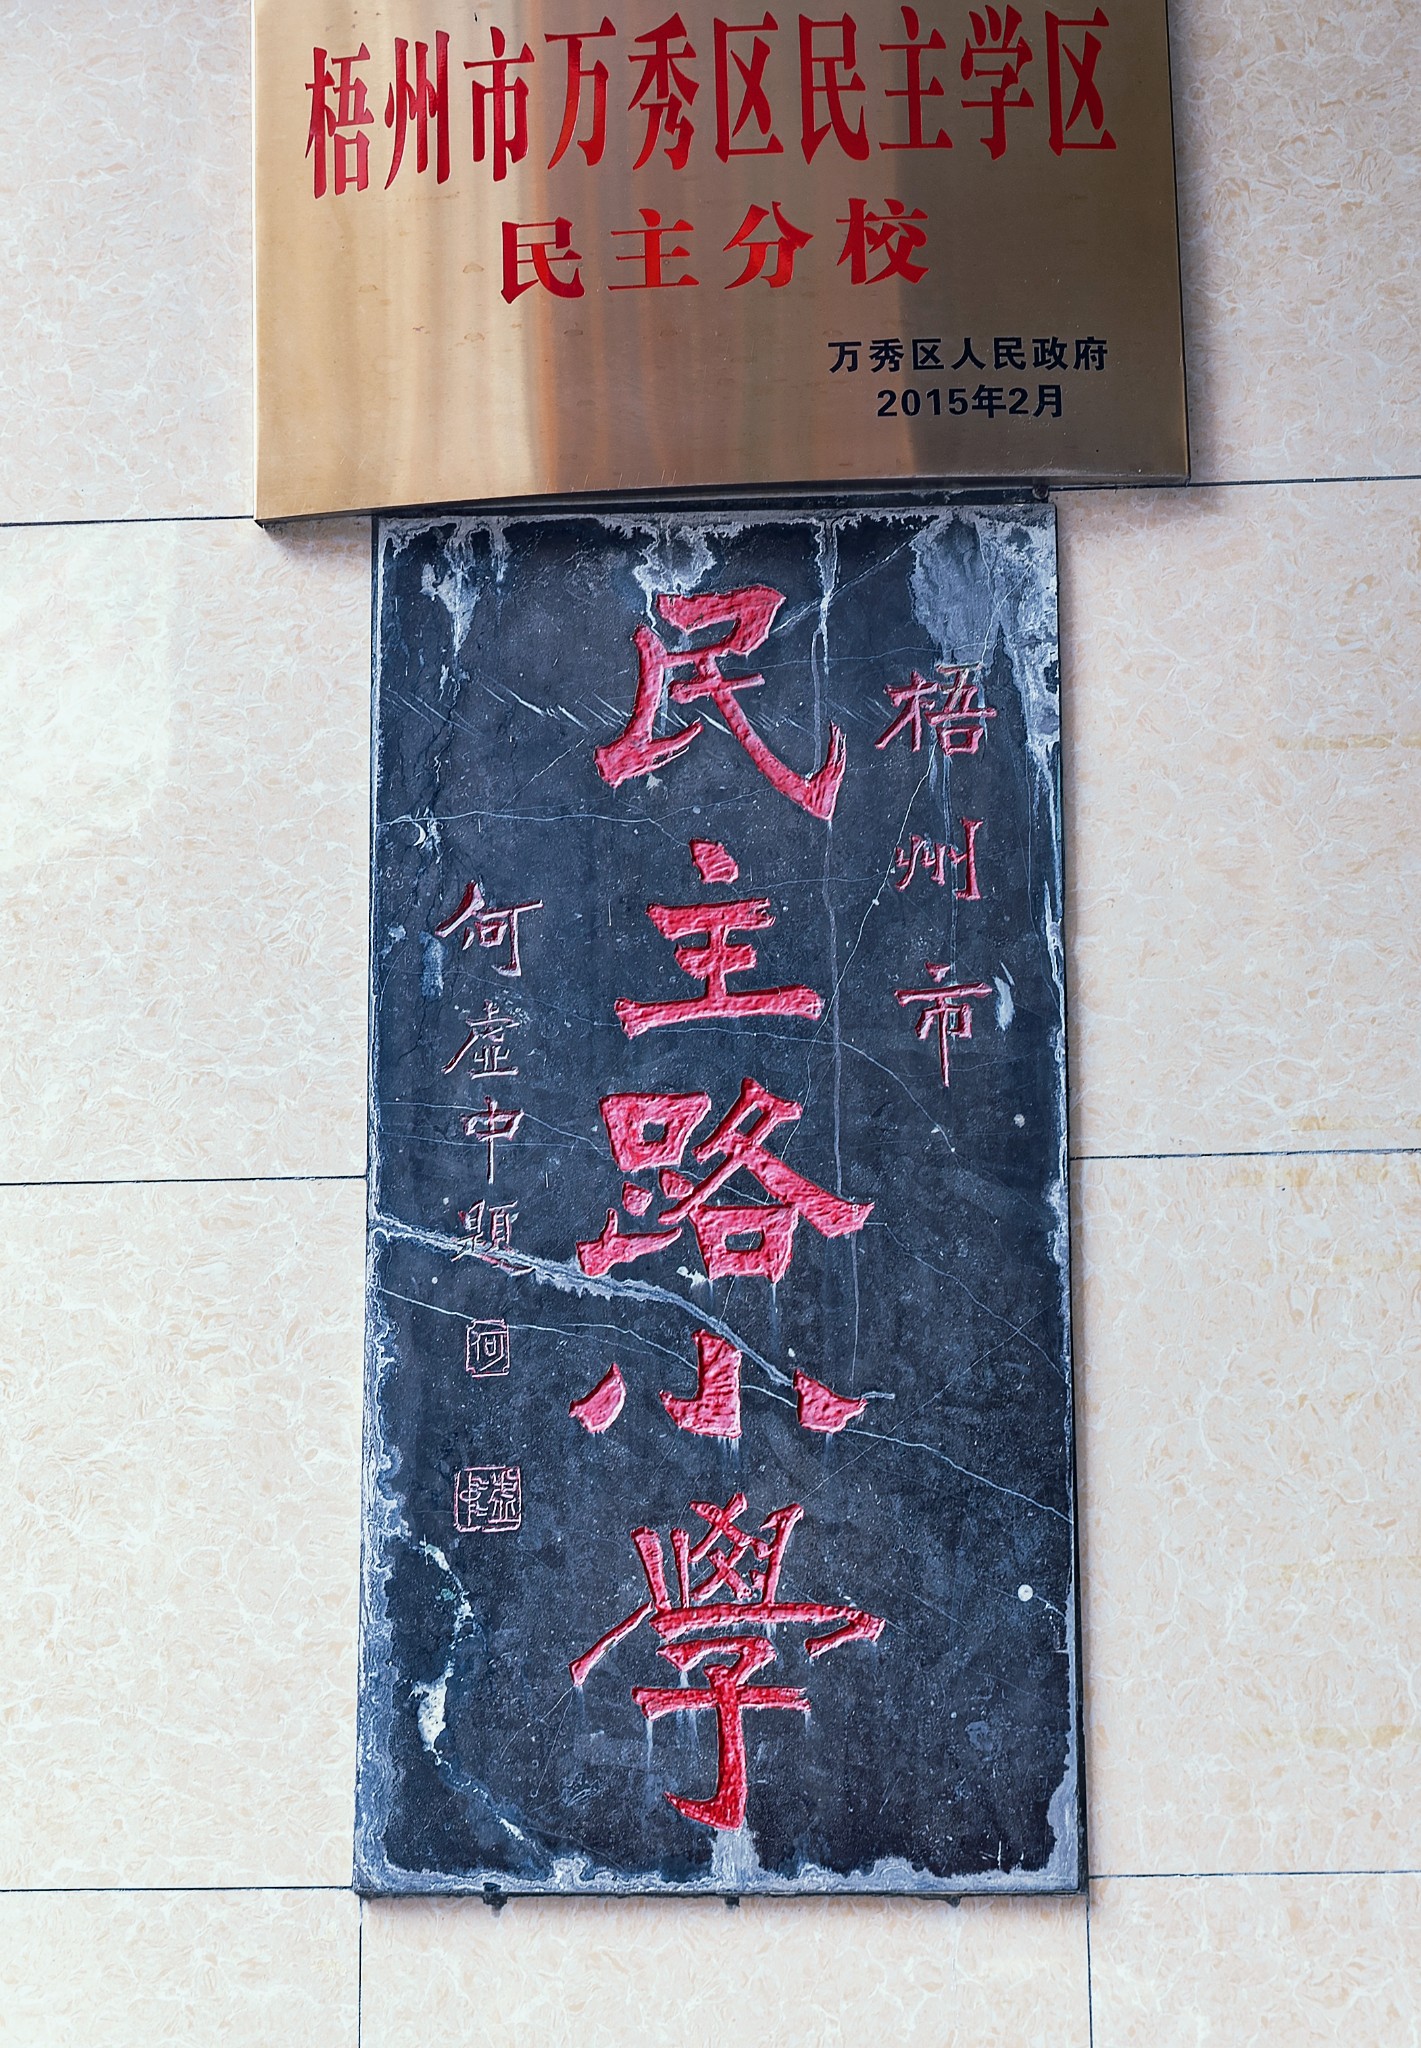 梧州市万秀区民主学区
民主分校
万秀区人民政府
2015年2月
梧州市
民主路小學
何虚中题
何